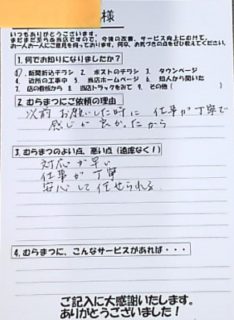 様
いつもありがとうございます。
まだまだ至らぬ当店ですので、今後の改善、サービス向上にむけて、
お一人お一人にご意見を伺っております。何卒、お気づきの点をぜひ教えてください。
1.何でお知りになりましたか?
1. 新聞折込チラシ 2. ポストのチラシ 3. タウンページ
4. 近所の工事中 5. 当店ホームページ 6. 知人から聞いた
7. 店の看板から 8. 当店トラックをみて 9. その他( )
2.むらまつにご依頼の理由
以前お願いした時に仕事が丁寧で
感じが良かったから
3.むらまつのよい点、悪い点(遠慮なく!)
対応が早い
仕事が丁寧
安心して任せられる
4.むらまつに、こんなサービスがあれば・・・
ご記入に大感謝いたします。
ありがとうございました!